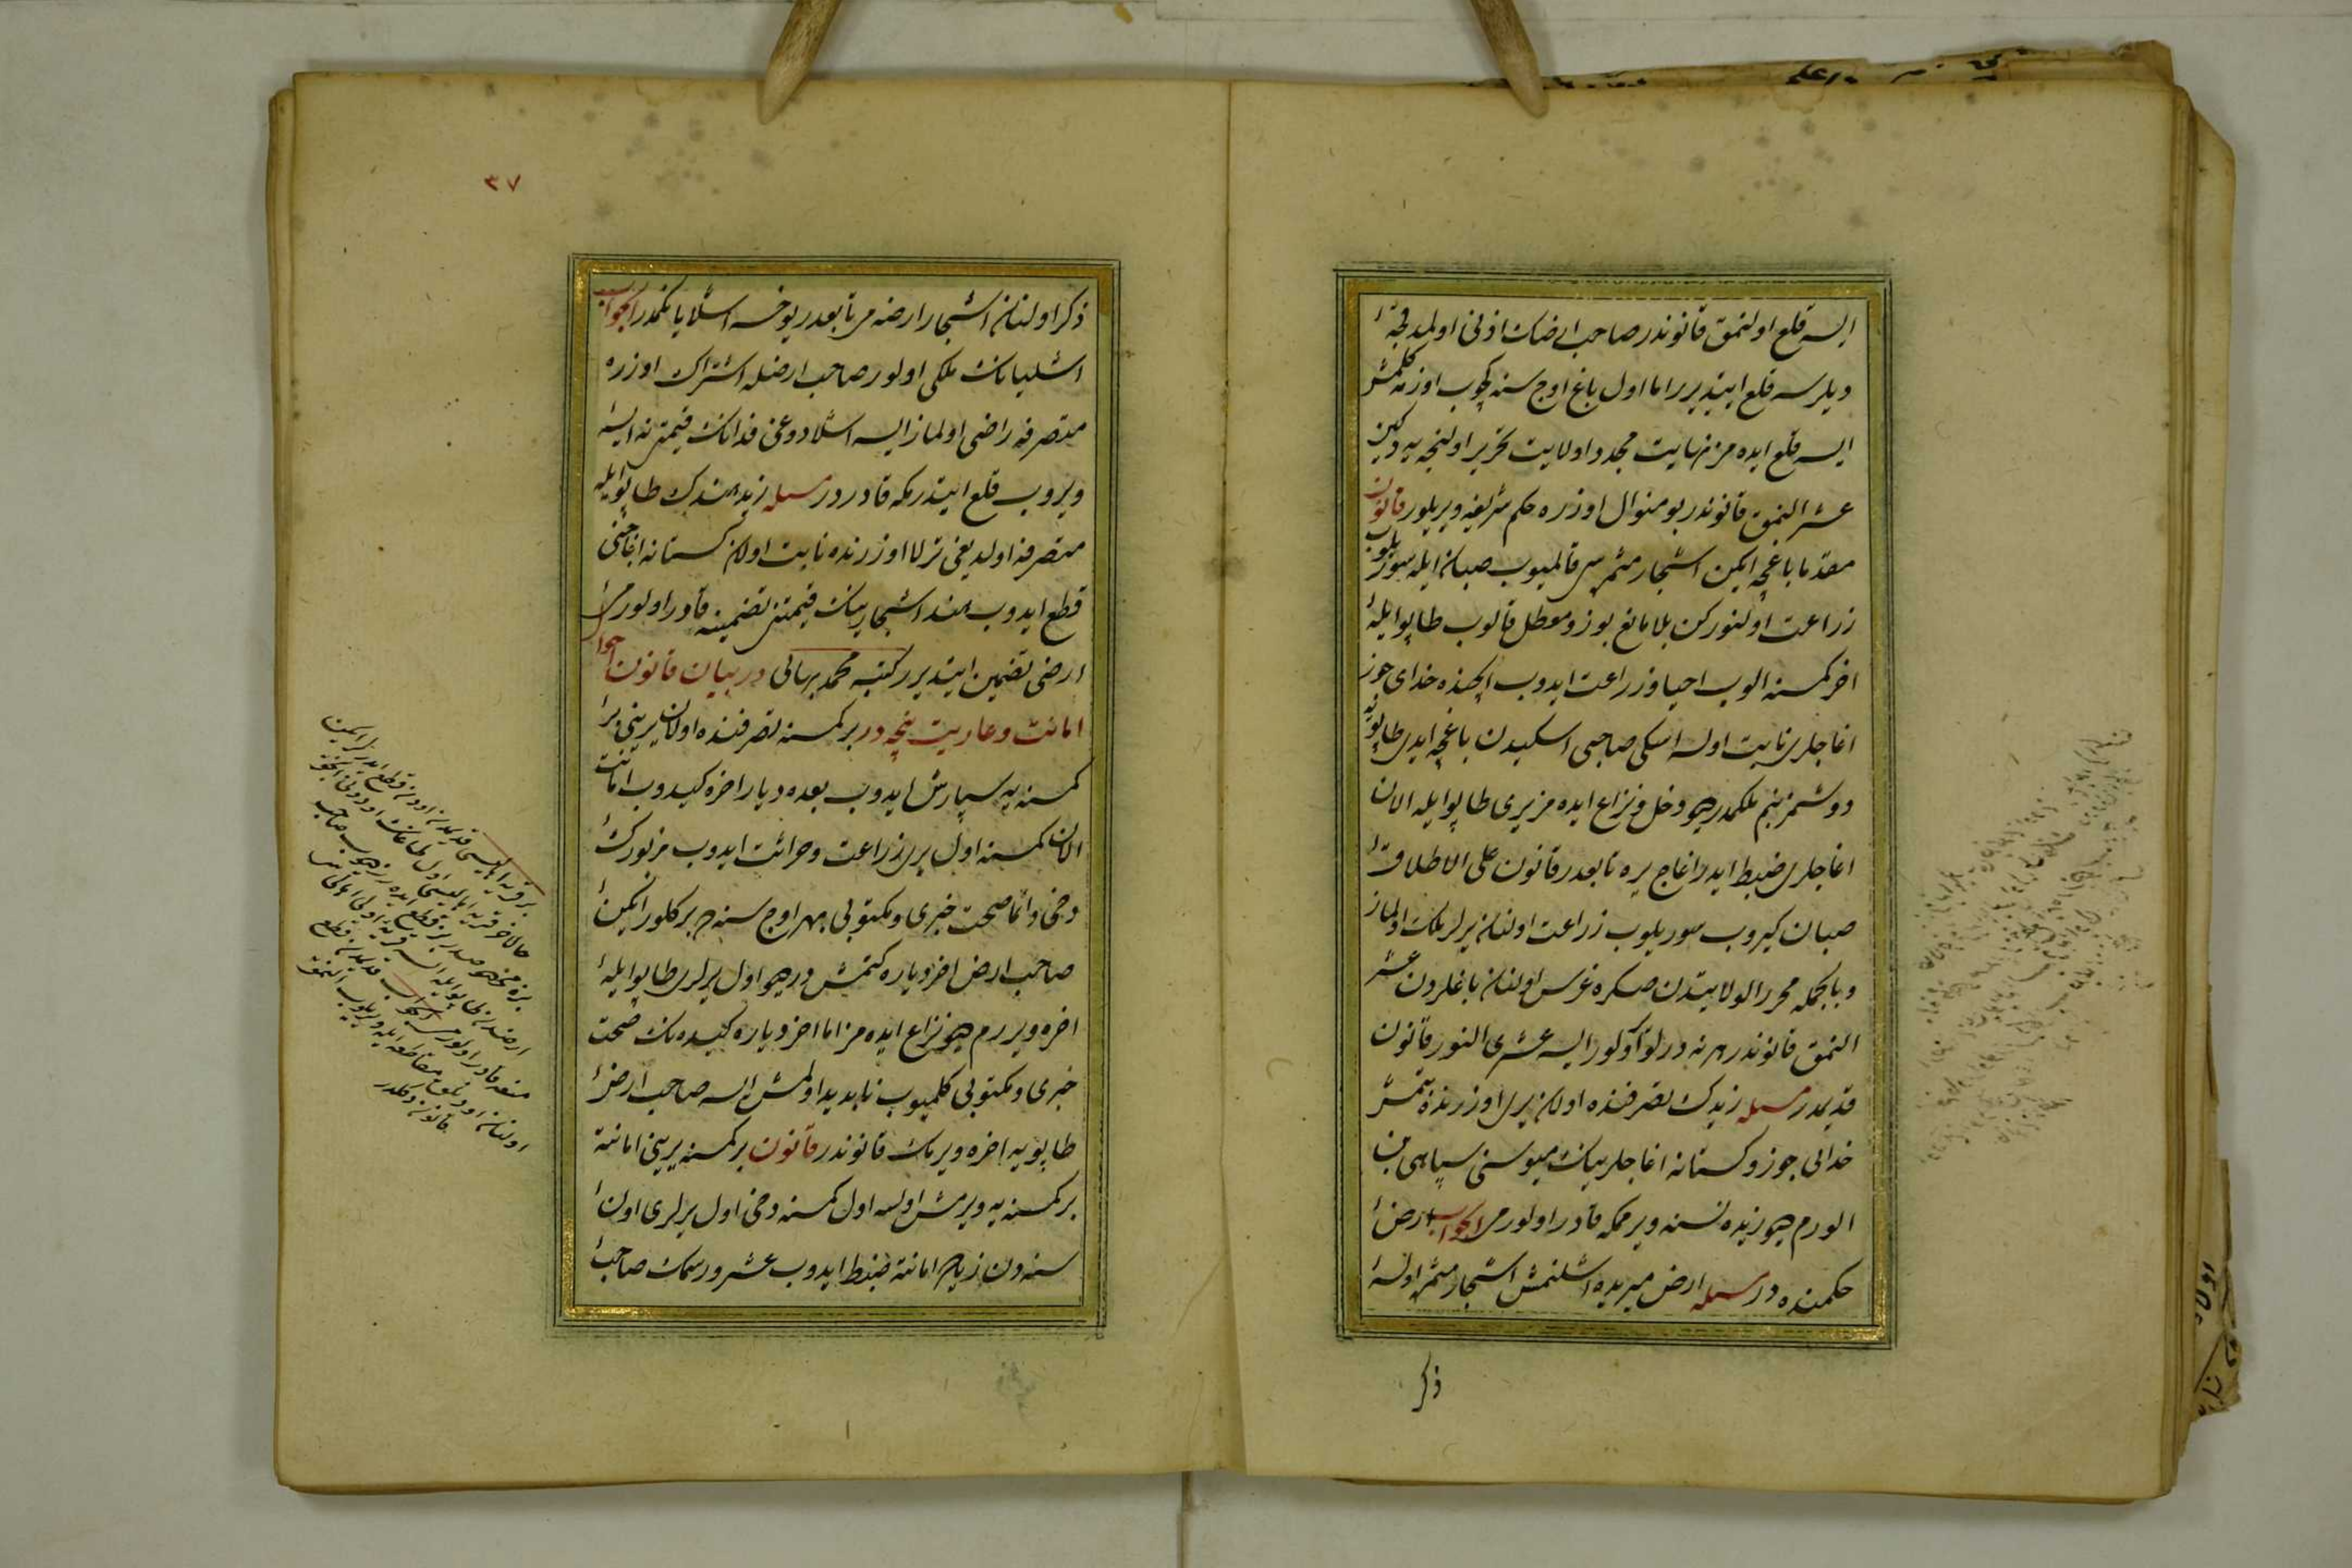 ایسه قلع اولنمق قانوندر صاحب ارضك اذنی اولمدقجه
دیلرسه قلع ایتدیرر اما اول باغ اوج سنه كچوب اوزمه كلمش
ایسه قلع ایده مز نهایت مجددا ولایت تحریر اولنجه یه دكین
عشر النمق قانوندر بو منوال اوزره حكم شریف ویریلور قانون
مقدما باغچه ایكن اشجار مثمره سی قالمیوب صبان ایله سوریلوب
زراعت اولنوركن بلا مانع بوز و معطل قالوب طاپو ایله
اخر كمسنه الوب احیا و زراعت ایدوب ایچنده خدای جوز
اغاجلری نابت اولسه اسكی صاحبی اسكیدن باغچه ایدی طاپویه
دوشمز بنم ملكمدر دیو دخل و نزاع ایده مز یری طاپو ایله الان
اغاجلری ضبط ایدر اغاج یره تابعدر قانون علی الاطلاق
صبان كیروب سوریلوب زراعت اولنان یرلر ملك اولماز
و بالجمله محرر الولایتدن صكره غرس اولنان باغلردن عشر
النمق قانوندر هر نه درلو اوكور ایسه عشری النور قانون
قدیمدر مسئله زیدك تصرفنده اولان یری اوزرنده بتمش
خدائی جوز و كستانه اغاجلرینك میوسنی سپاهی بن
الورم دیو زیده نسنه ویرممكه قادر اولور می الجواب ارض
حكمنده در مسئله ارض میریده اشلنمش اشجار مثمر اولسه
ذكر
٣٧
ذكر اولنان اشجار ارضه می تابعدر یوخسه اشلایانكمدر الجواب
اشلیانك ملكی اولور صاحب ارضله اشتراك اوزره
متصرفه راضی اولماز ایسه اشلادوغی فدانك قیمتی نه ایسه
ویروب قلع ایتدرمكه قادر در مسئله زید هندك طاپو ایله
متصرفه اولدیغی ترلا اوزرنده نابت اولان كستانه اغاجنی
قطع ایدوب هند اشجارینك قیمتنی تضمینه قادر اولور می الجواب
ارضی تضمین ایتدیرر كتبه محمد بهائی در بیان قانون احوال
امانت و عاریت نیچه در بر كمسنه تصرفنده اولان یرینی بر
كمسنه یه سپارش ایدوب بعده دیار اخره كیدوب امانت
الان كمسنه اول یری زراعت و حراثت ایدوب مزبورك
دخی دائما صحت خبری و مكتوبی هر اوج سنه ده بر كلور ایكن
صاحب ارض اخر دیاره كتمش در دیو اول یرلری طاپو ایله
اخره ویررم دیو نزاع ایده مز اما اخر دیاره كیدنك صحت
خبری و مكتوبی كلمیوب نابدید اولمش ایسه صاحب ارض
طاپویه اخره ویرمك قانوندر قانون بر كمسنه یرینی امانة
بر كمسنه یه ویرمش اولسه اول كمسنه دخی اول یرلری اون
سنه دن زیاده امانة ضبط ایدوب عشر و رسمك صاحب
بر قریه اهالیسی قدیمدن اودون قطع ایدر لر ایكن
حالا اخر قریه اهالیسی اول طاغك اودونی انجق
بزه مخصوصدر سز قطع ایده مزسز دیوب صاحب
ارضدن طاپو ایله السه قریه اولی اهالیسی
منعه قادر اولور می الجواب قدیمدن قطع
اولنان اودونلق مقاطعه ایله ویریلوب النمق
قانون دكلدر